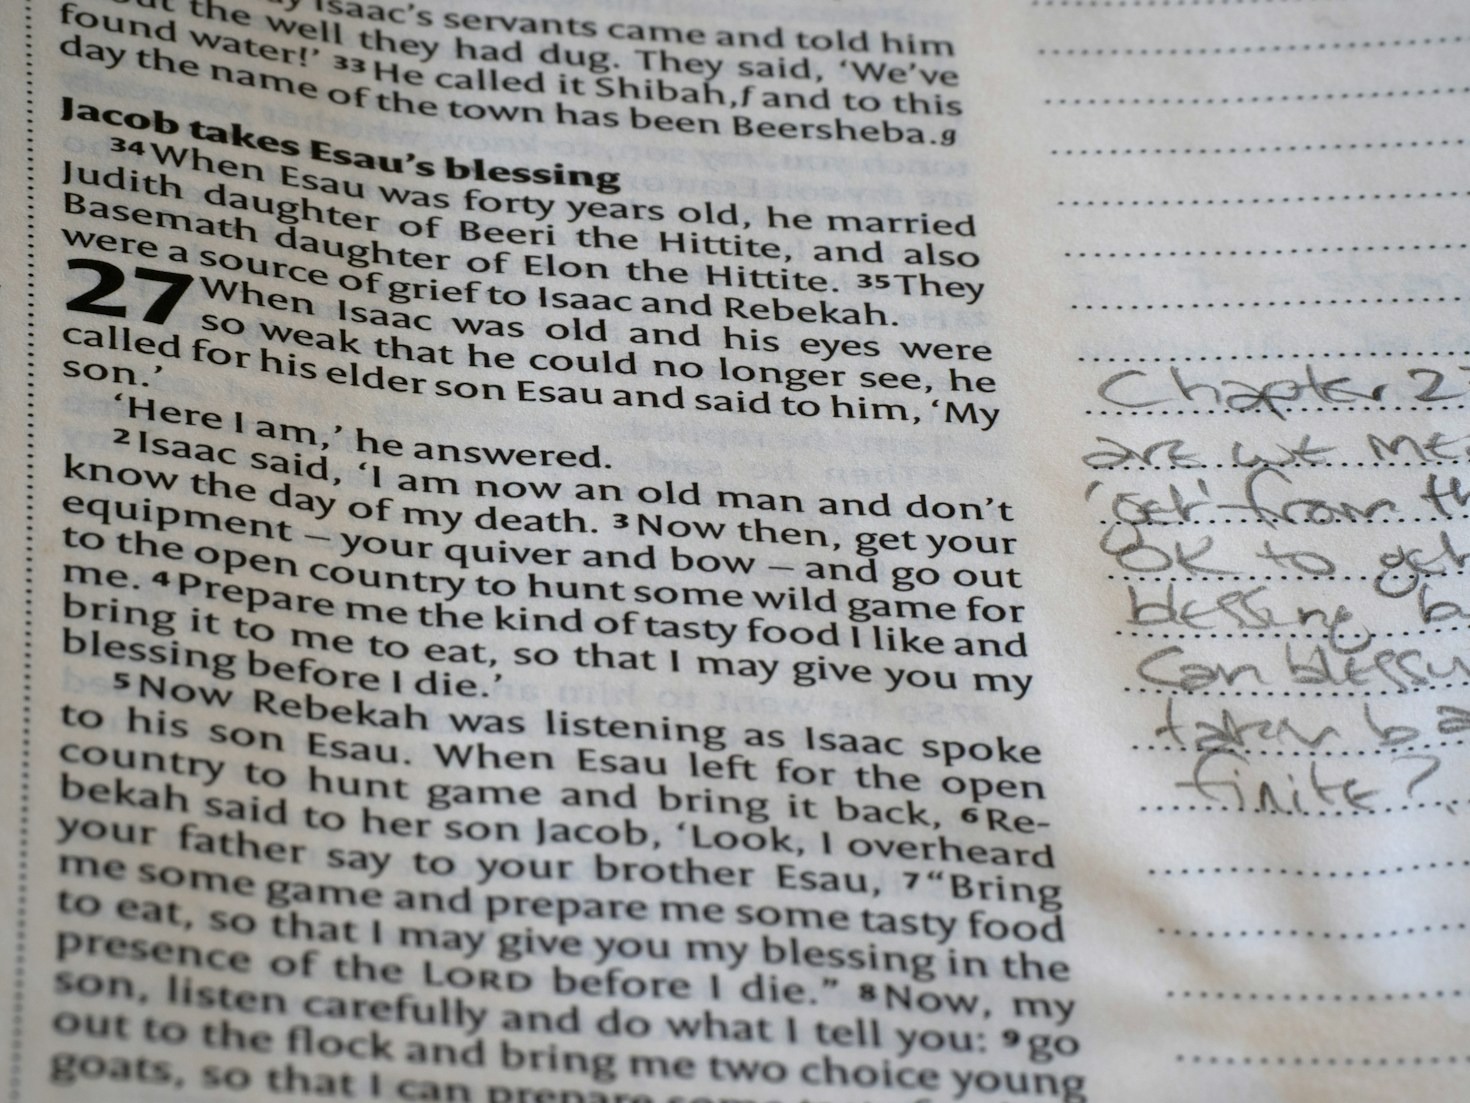 Isaac's servants came and told him
the well they had dug. They said, 'We've
found water!' 33 He called it Shibah,f and to this
day the name of the town has been Beersheba.g
Jacob takes Esau's blessing
34 When Esau was forty years old, he married
Judith daughter of Beeri the Hittite, and also
Basemath daughter of Elon the Hittite. 35 They
were a source of grief to Isaac and Rebekah.
27 When Isaac was old and his eyes were
so weak that he could no longer see, he
called for his elder son Esau and said to him, 'My
son.'
'Here I am,' he answered.
2 Isaac said, 'I am now an old man and don't
know the day of my death. 3 Now then, get your
equipment – your quiver and bow – and go out
to the open country to hunt some wild game for
me. 4 Prepare me the kind of tasty food I like and
bring it to me to eat, so that I may give you my
blessing before I die.'
5 Now Rebekah was listening as Isaac spoke
to his son Esau. When Esau left for the open
country to hunt game and bring it back, 6 Re-
bekah said to her son Jacob, 'Look, I overheard
your father say to your brother Esau, 7 "Bring
me some game and prepare me some tasty food
to eat, so that I may give you my blessing in the
presence of the LORD before I die." 8 Now, my
son, listen carefully and do what I tell you: 9 go
out to the flock and bring me two choice young
goats, so that I can prepare some
Chapter 2
are we
'get' from
OK to get
blessing
Can
taken
finite?